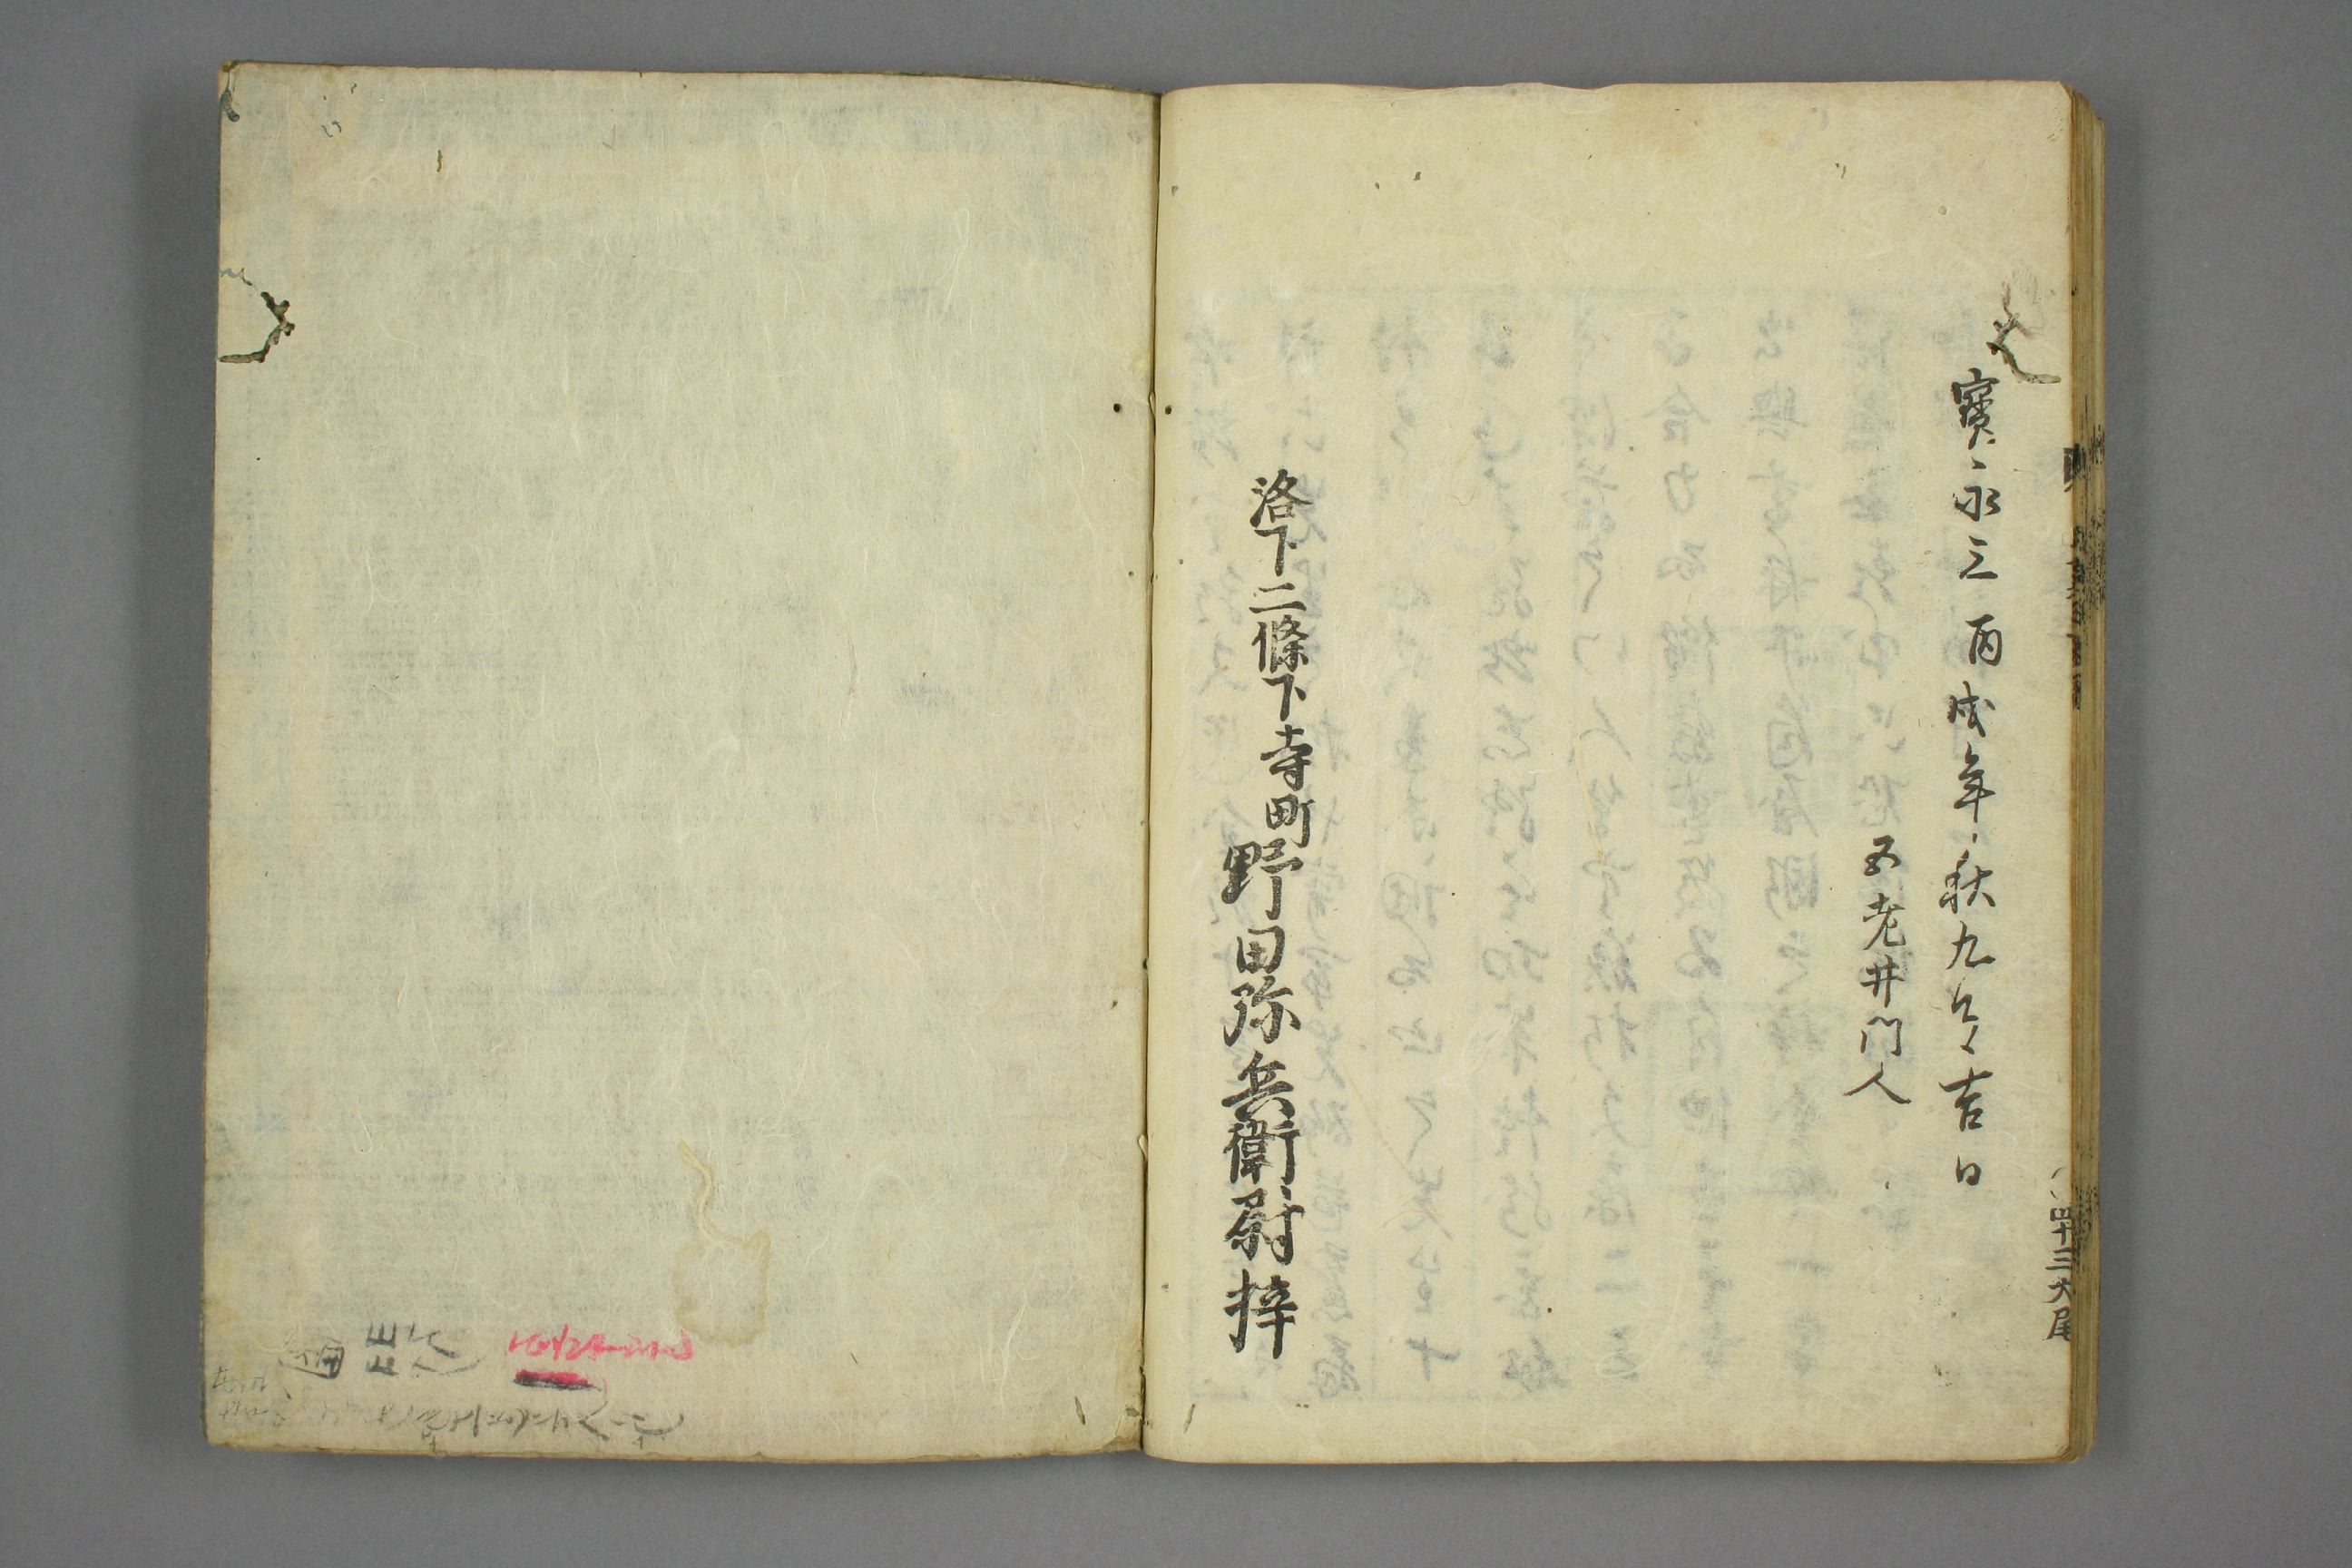 寶永三丙戌年秋九月吉日
五老井門人
洛下二條下寺町野田弥兵衛尉梓
四十三大尾